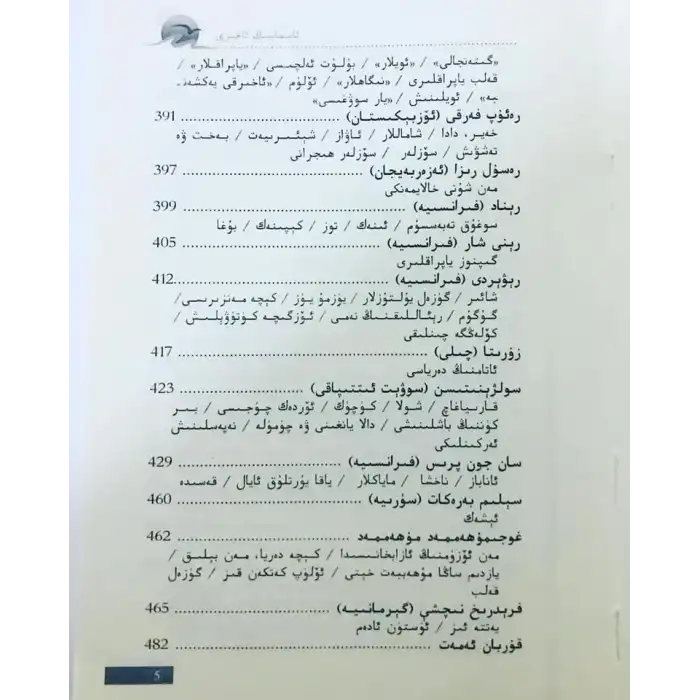 ئاسماننىڭ ئاخىرى
«گىتەنجالى» / «ئويلار» / بۇلۇت ئەلچىسى / «ياپراقلار» /
قەلب ياپراقلىرى / «نىگاھلار» / ئۆلۈم / «ئاخىرقى يەكشەنـ
بە» / ئويلىنىش / «يار سوۋغىسى»
رەئۇپ فەرقى (ئۆزبېكىستان) ........................ 391
خەير، دادا / شاماللار / ئاۋاز / شېئىرىيەت / بەخت ۋە
تەشۋىش / سۆزلەر / سۆزلەر ھىجرانى
رەسۇل رىزا (ئەزەربەيجان) ........................ 397
مەن شۇنى خالايمەنكى
رېناد (فىرانسىيە) ........................ 399
سوغۇق تەبەسسۇم / ئىنەك / توز / كېپىنەك / بۇغا
رېنى شار (فىرانسىيە) ........................ 405
گىپنوز ياپراقلىرى
رېۋېردى (فىرانسىيە) ........................ 412
شائىر / گۈزەل يۇلتۇزلار / يۈزمۇ يۈز / كېچە مەنزىرىسى /
گۈگۈم / رېئاللىقنىڭ نەمى / ئۆزگىچە كۈتۈۋېلىش /
كۆلەڭگە چىنلىقى
زۇرىتا (چىلى) ........................ 417
ئاتامنىڭ دەرياسى
سولژېنىتسىن (سوۋېت ئىتتىپاقى) ........................ 423
قارىياغاچ / شولا / كۈچۈك / ئۆردەك چۈجىسى / بىر
كۈننىڭ باشلىنىشى / دالا يانغىنى ۋە چۈمۈلە / نەپەسلىنىش
ئەركىنلىكى
سان جون پېرىس (فىرانسىيە) ........................ 429
ئاناباز / ناخشا / ماياكلار / ياقا يۇرتلۇق ئايال / قەسىدە
سېلىم بەرەكات (سۈرىيە) ........................ 460
ئېشەك
غوجىمۇھەممەد مۇھەممەد ........................ 462
مەن ئۆزۈمنىڭ ئازابخانىسىدا / كېچە دەريا، مەن بېلىق /
يازدىم ساڭا مۇھەببەت خېتى / ئۆلۈپ كەتكەن قىز / گۈزەل
قەلب
فرېدرىخ نىچشې (گېرمانىيە) ........................ 465
يەتتە ئىز / ئۈستۈن ئادەم
قۇربان ئەمەت ........................ 482
5